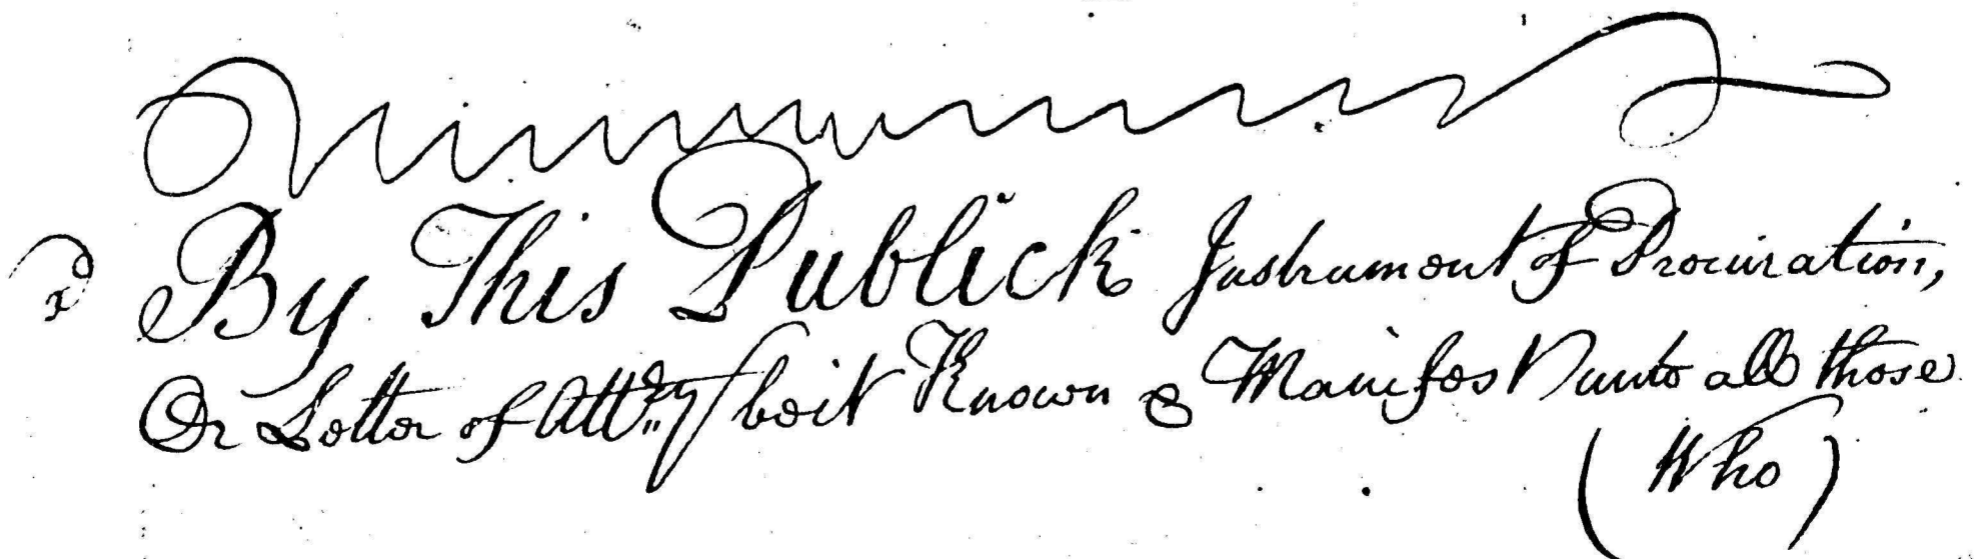 By This Publick Instrument of Procuration,
Or Letter of Att.ry beit Known & Manifest unto all those
(Who)